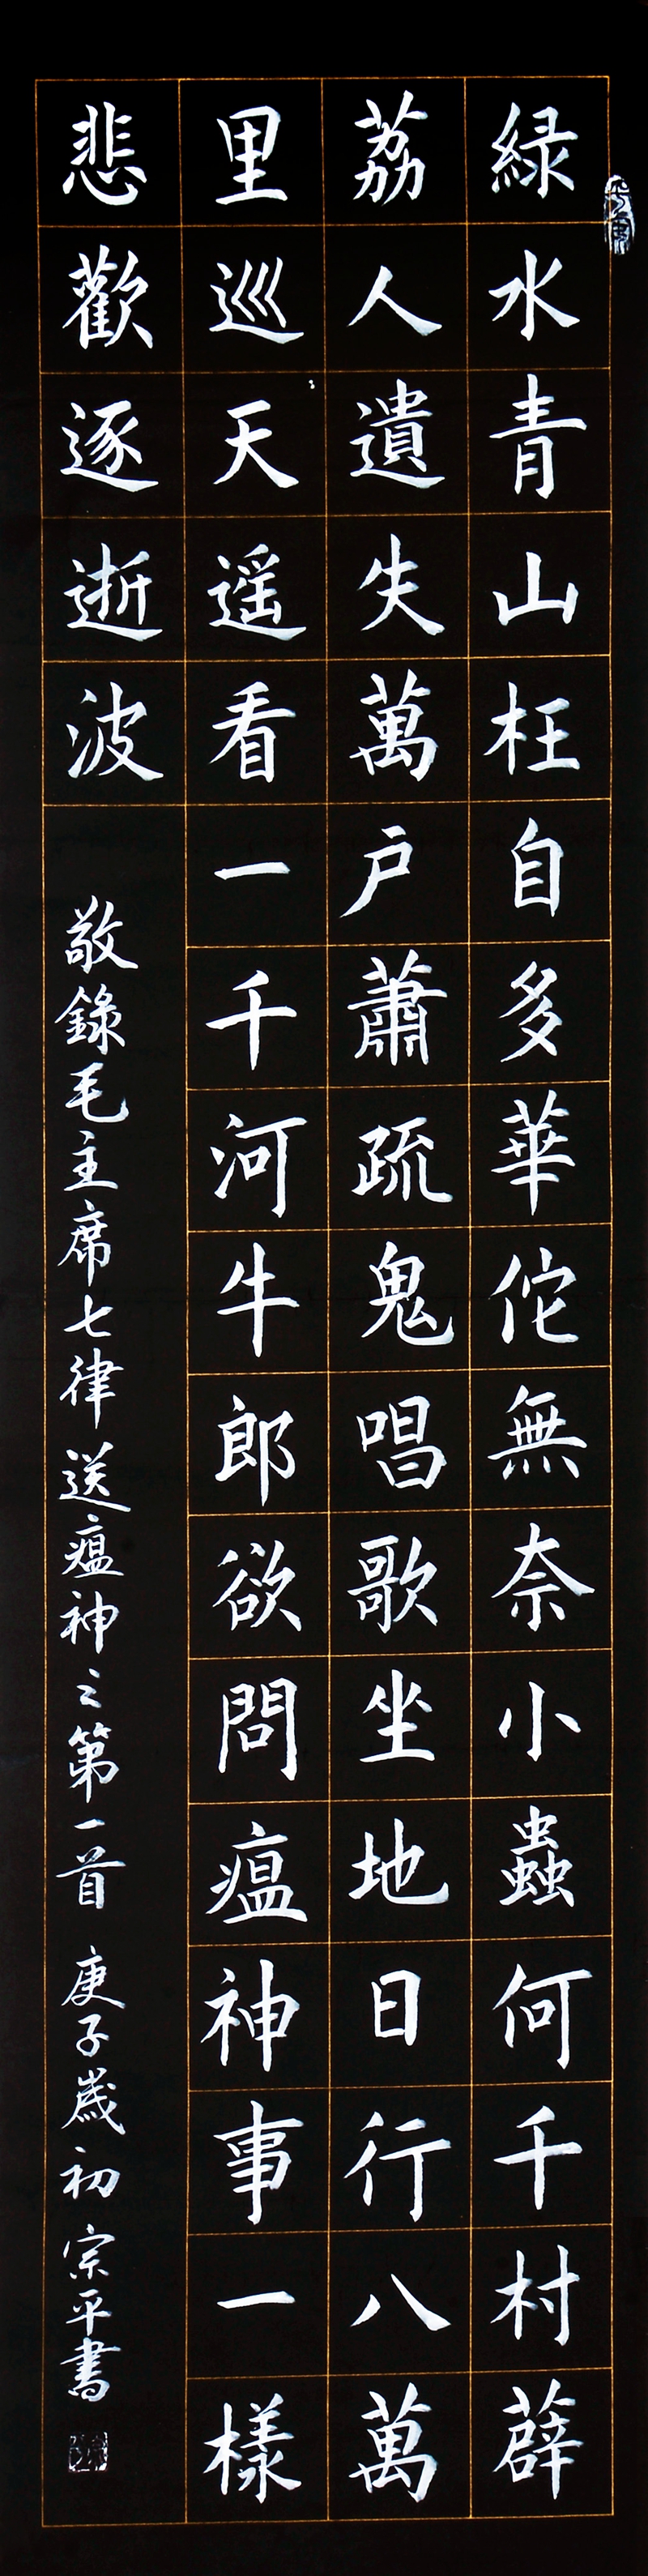 緑水青山枉自多華佗無奈小蟲何千村薜
荔人遺失萬户蕭疏鬼唱歌坐地日行八萬
里巡天遥看一千河牛郎欲問瘟神事一樣
悲歡逐逝波
敬錄毛主席七律送瘟神之第一首 庚子歲初 宗平書